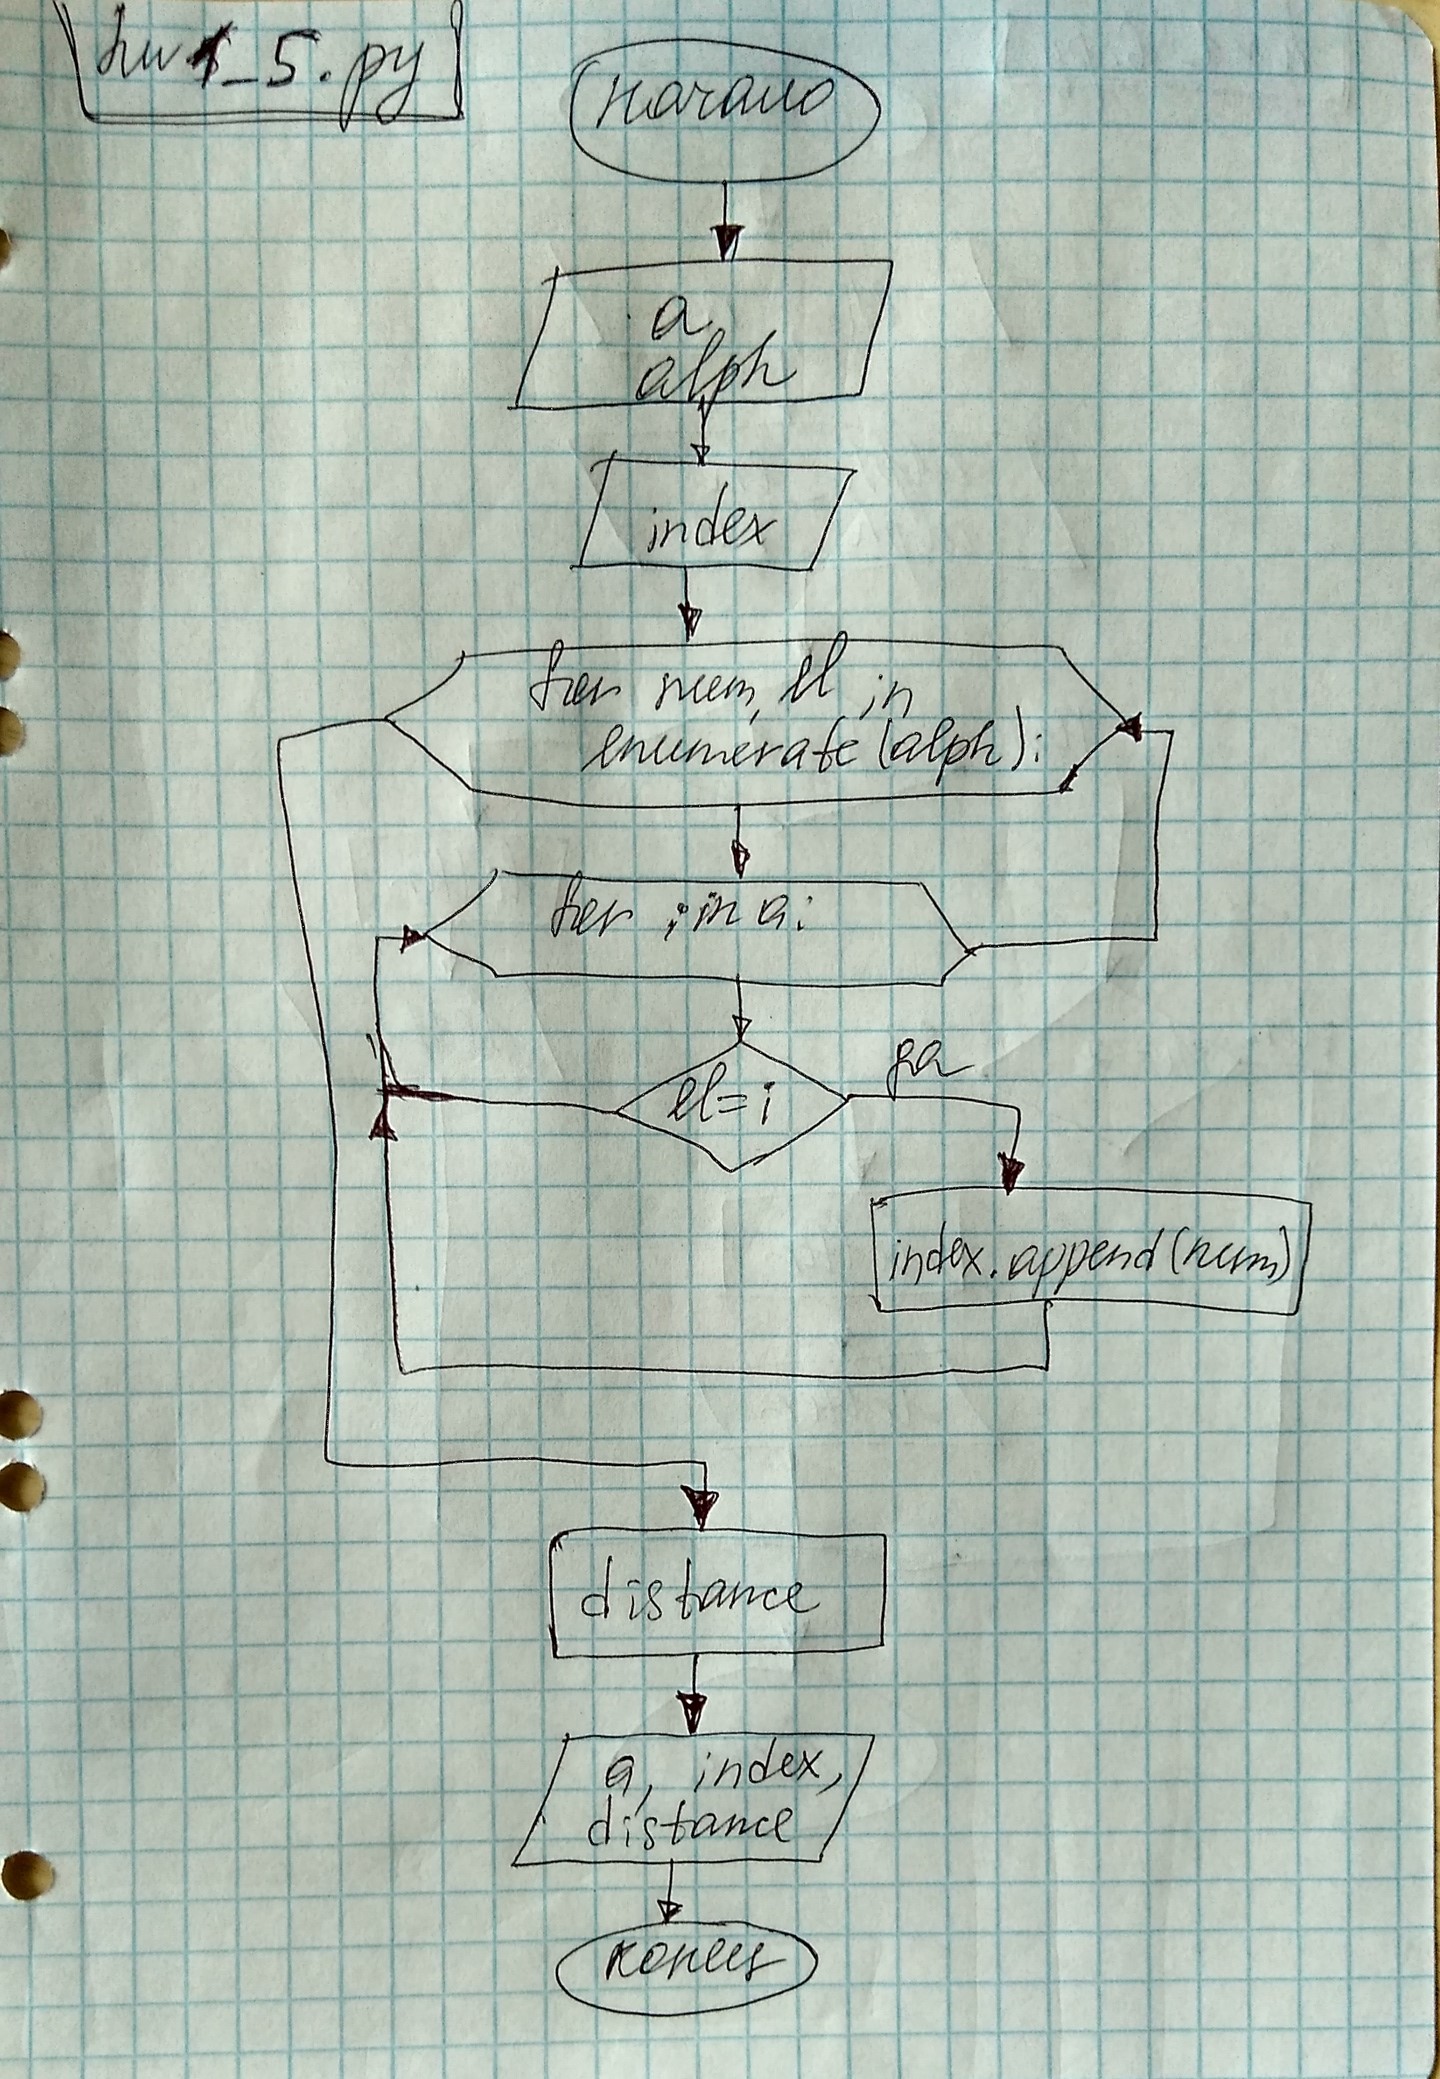 hw1_5.py
начало
a,
alph
index
for num, el in
enumerate (alph):
for i in a:
el = i
да
index.append(num)
distance
a, index,
distance
конец